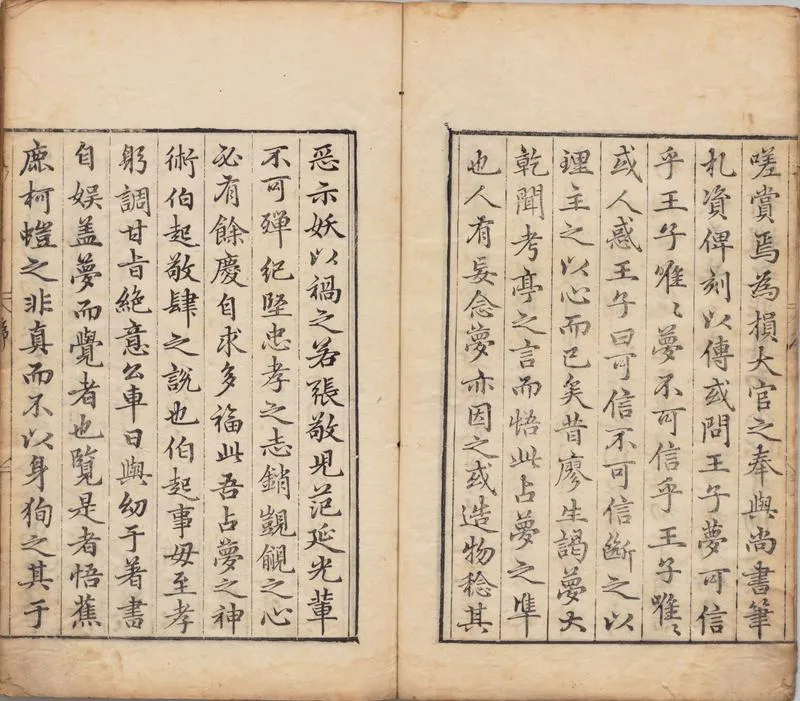 嗟賞焉為損大官之奉與尚書筆
札資俾刻以傳或問王子夢可信
乎王子唯〻夢不可信乎王子唯〻
或人惑王子曰可信不可信斷之以
理主之以心而已矣昔廖生謁夢大
乾聞考亭之言而悟此占夢之準
也人有妄念夢亦因之或造物稔其
惡示妖以禍之若張敬児范延光輩
不可殫紀堅忠孝之志銷覬覦之心
必有餘慶自求多福此吾占夢之神
術伯起敬肆之說也伯起事母至孝
躬調甘旨絶意公車日與幼于著書
自娱盖夢而覺者也覽是者悟蕉
鹿柯螘之非真而不以身狥之其于